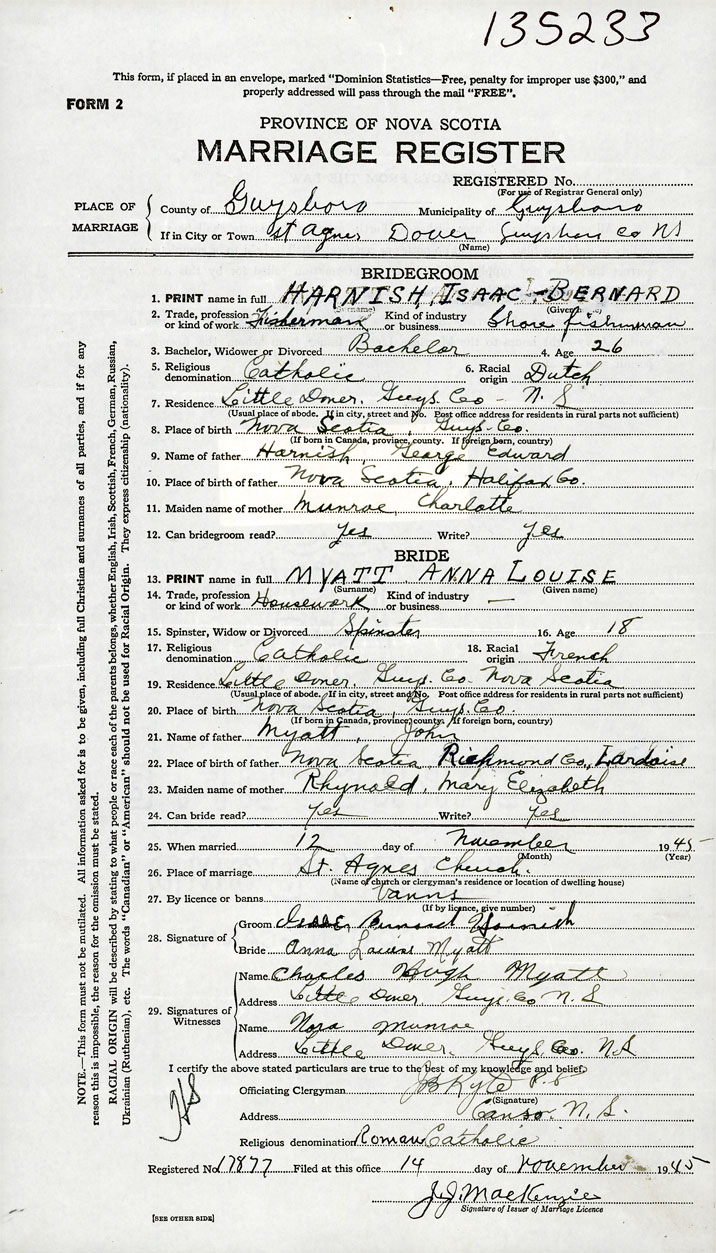 135233
This form, if placed in an envelope, marked "Dominion Statistics—Free, penalty for improper use $300," and
properly addressed will pass through the mail "FREE".
FORM 2
PROVINCE OF NOVA SCOTIA
MARRIAGE REGISTER
REGISTERED No.
(For use of Registrar General only)
PLACE OF MARRIAGE
County of Guysboro Municipality of Guysboro
If in City or Town St Agnes Dover Guysboro Co NS
(Name)
BRIDEGROOM
1. PRINT name in full HARNISH, ISAAC - BERNARD
(Surname) (Given name)
2. Trade, profession or kind of work Fisherman Kind of industry or business Shore fishman
3. Bachelor, Widower or Divorced Bachelor 4. Age 26
5. Religious denomination Catholic 6. Racial origin Dutch
7. Residence Little Dover, Guys. Co - N. S
(Usual place of abode. If in city, street and No. Post office address for residents in rural parts not sufficient)
8. Place of birth Nova Scotia, Guys. Co.
(If born in Canada, province, county. If foreign born, country)
9. Name of father Harnish, George Edward
10. Place of birth of father Nova Scotia, Halifax Co.
11. Maiden name of mother Munroe, Charlotte
12. Can bridegroom read? Yes Write? Yes
BRIDE
13. PRINT name in full MYATT ANNA LOUISE
(Surname) (Given name)
14. Trade, profession or kind of work Housework Kind of industry or business —
15. Spinster, Widow or Divorced Spinster 16. Age 18
17. Religious denomination Catholic 18. Racial origin French
19. Residence Little Dover, Guys. Co. Nova Scotia
(Usual place of abode. If in city, street and No. Post office address for residents in rural parts not sufficient)
20. Place of birth Nova Scotia, Guys. Co.
(If born in Canada, province, county. If foreign born, country)
21. Name of father Myatt, John
22. Place of birth of father Nova Scotia, Richmond Co., Lardoise
23. Maiden name of mother Rhynold, Mary Elizabeth
24. Can bride read? Yes Write? Yes
25. When married 12 day of November 1945
(Month) (Year)
26. Place of marriage St. Agnes Church.
(Name of church or clergyman's residence or location of dwelling house)
27. By licence or banns Vanns
(If by licence, give number)
28. Signature of
Groom Bernard Harnish
Bride Anna Louise Myatt
29. Signatures of Witnesses
Name Charles Hugh Myatt
Address Little Dover, Guys. Co N. S
Name Nora Munroe
Address Little Dover, Guys. Co. NS
I certify the above stated particulars are true to the best of my knowledge and belief.
Officiating Clergyman JB Kyte P.P.
(Signature)
Address Canso, N. S.
Religious denomination Roman Catholic
Registered No. 17877 Filed at this office 14 day of November 1945
J.J. MacKenzie
Signature of Issuer of Marriage Licence
[SEE OTHER SIDE]
NOTE.—This form must not be mutilated. All information asked for is to be given, including full Christian and surnames of all parties, and if for any
reason this is impossible, the reason for the omission must be stated.
RACIAL ORIGIN will be described by stating to what people or race each of the parents belongs, whether English, Irish, Scottish, French, German, Russian,
Ukrainian (Ruthenian), etc. The words "Canadian" or "American" should not be used for Racial Origin. They express citizenship (nationality).